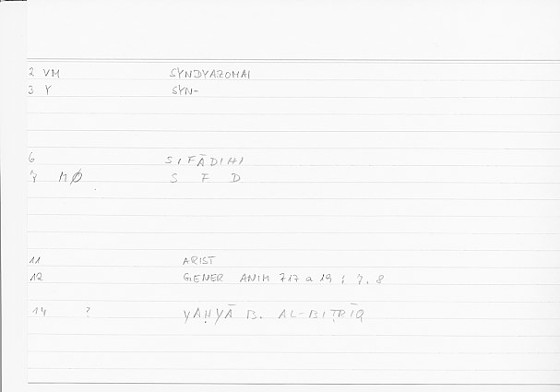 2 VM SYNDYAZOMAI
3 Y SYN-
6 SIFĀDIHI
MØ S F D
11 ARIST
12 GENER ANIM 717 a 19 ; 7, 8
14 ? YAḤYĀ B. AL-BIṬRĪQ